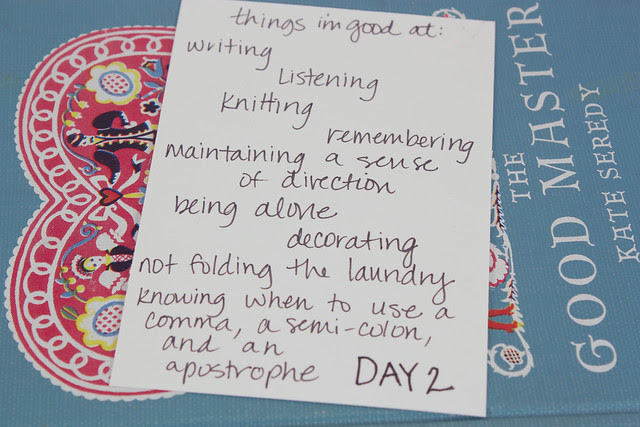 things i'm good at:
writing
Listening
knitting
remembering
maintaining a sense
of direction
being alone
decorating
not folding the laundry
knowing when to use a
comma, a semi-colon,
and an
apostrophe DAY 2
THE
GOOD MASTER
KATE SEREDY